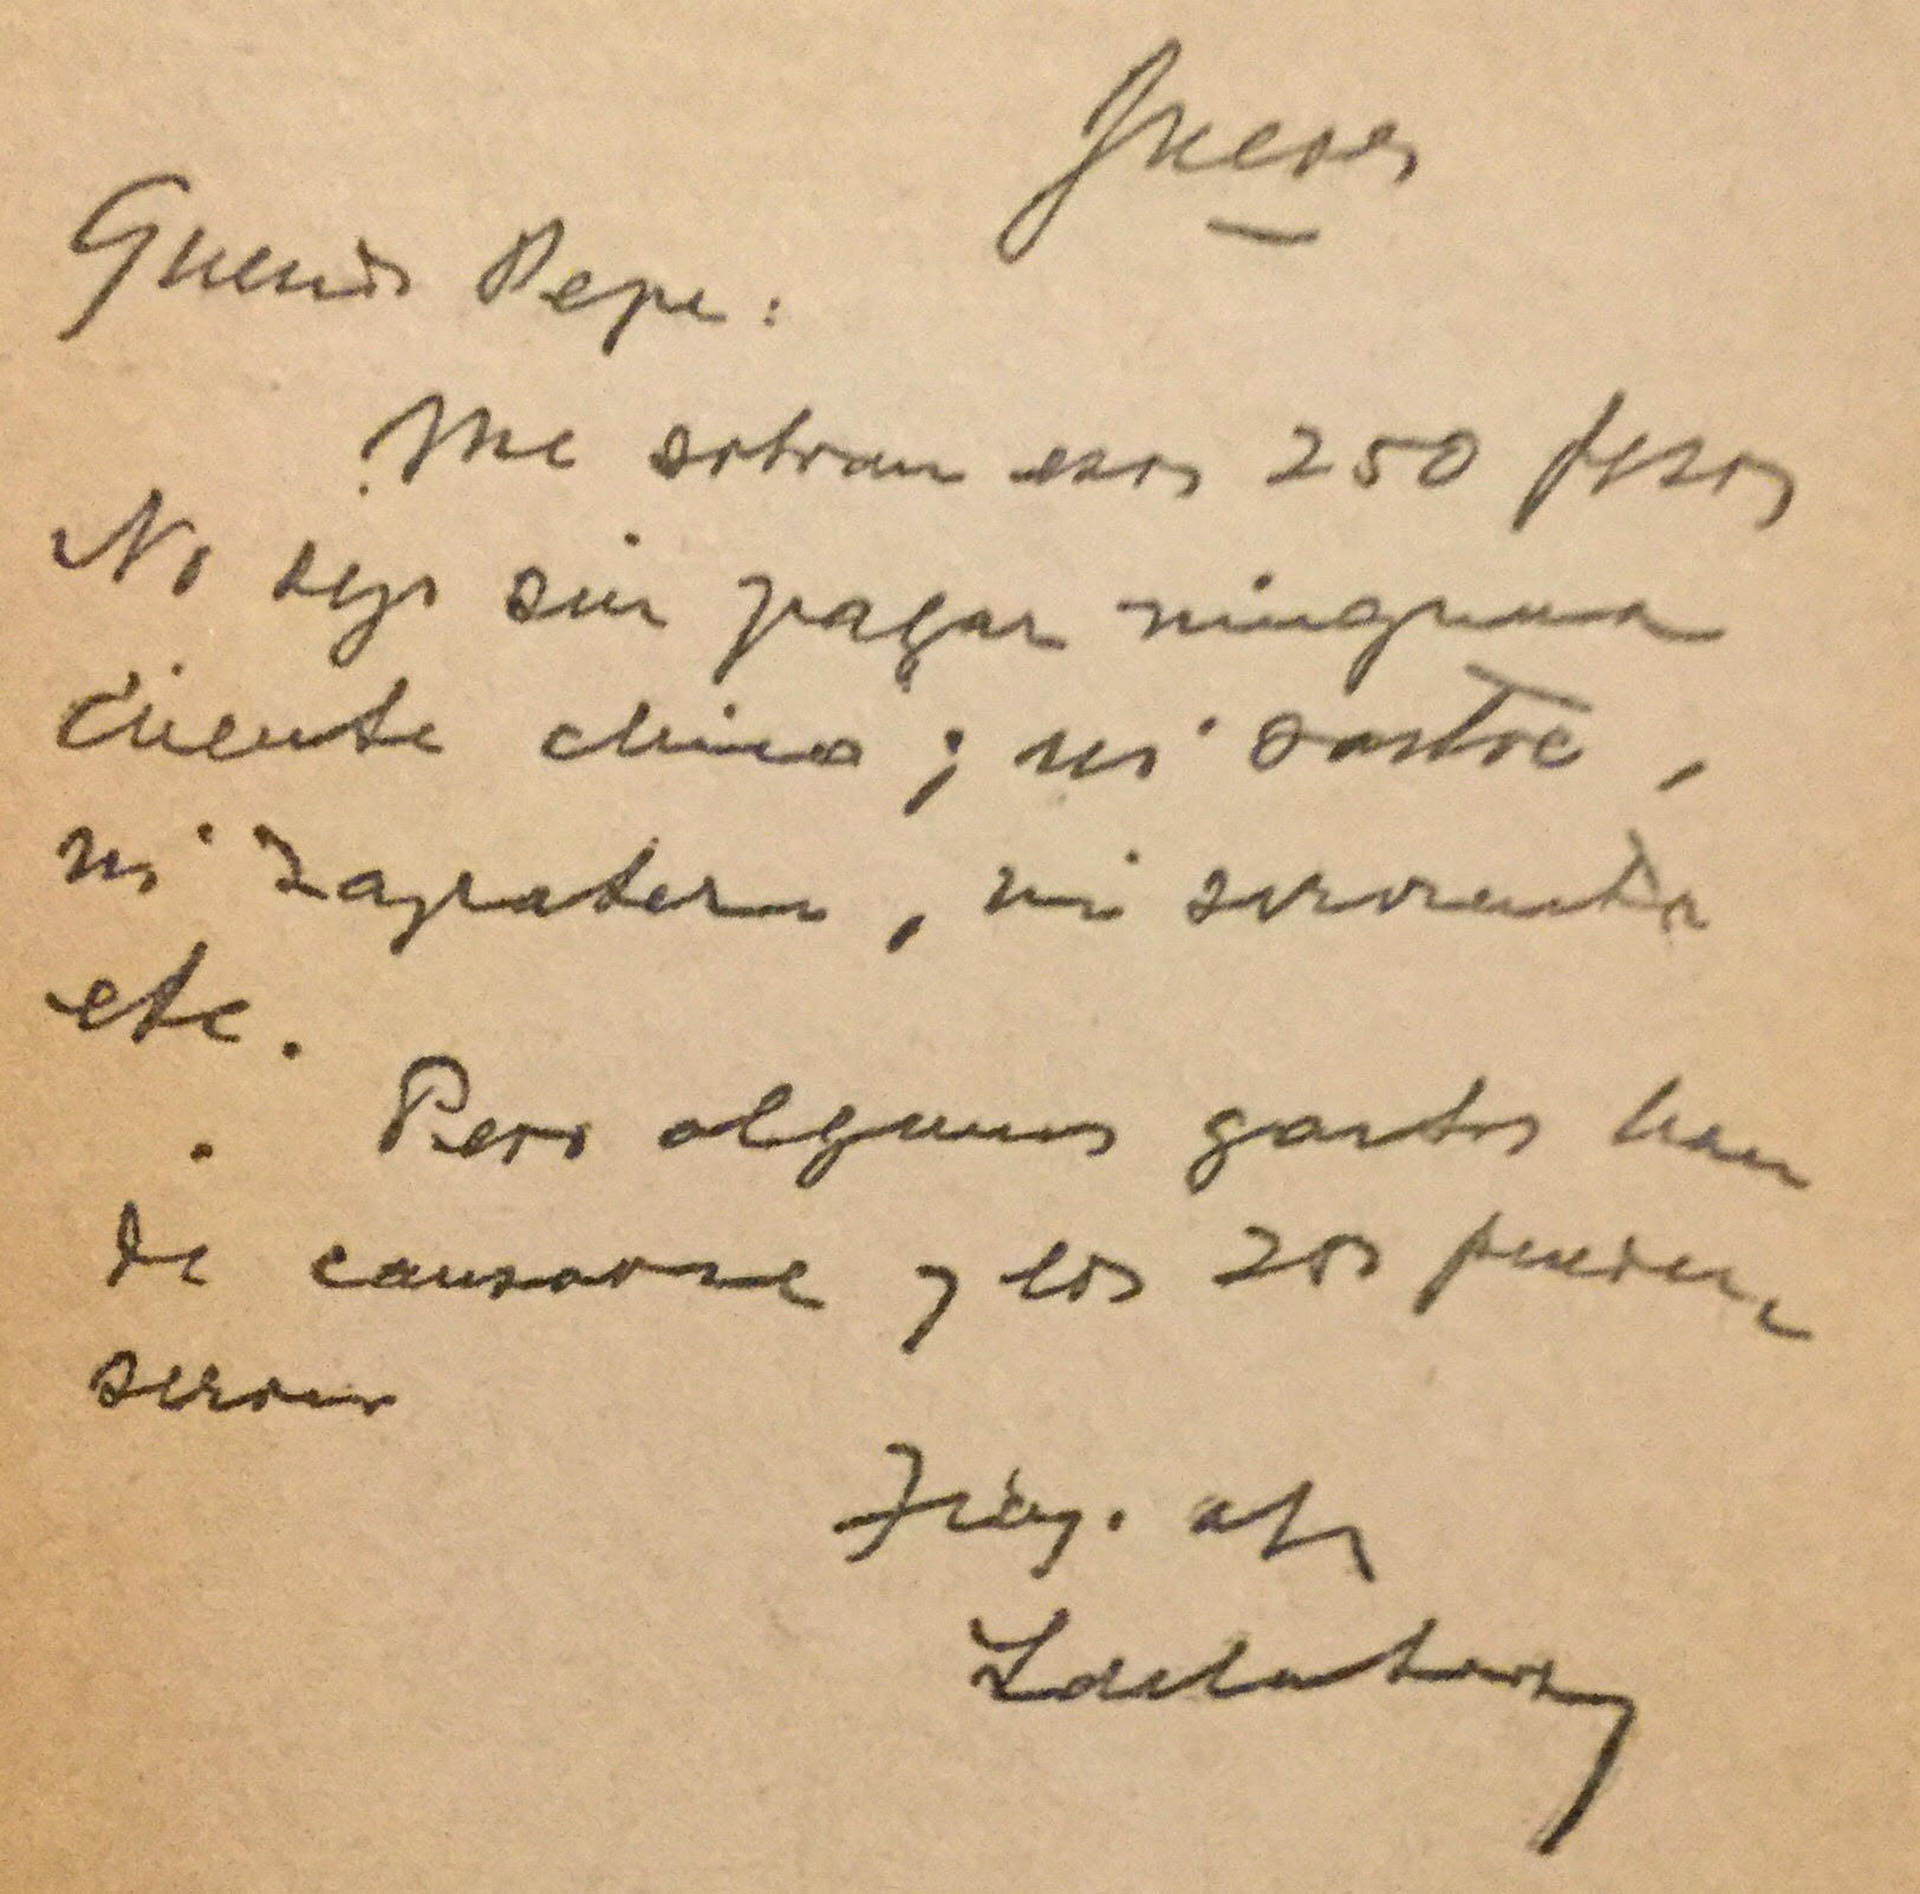 Jueves
Querido Pepe:
Me sobran esos 250 pesos
No dejo sin pagar ninguna
cuenta chica; ni sastre,
ni zapatero, ni sirvienta
etc.
Pero algunos gastos han
de causarse y los 250 pueden
servir